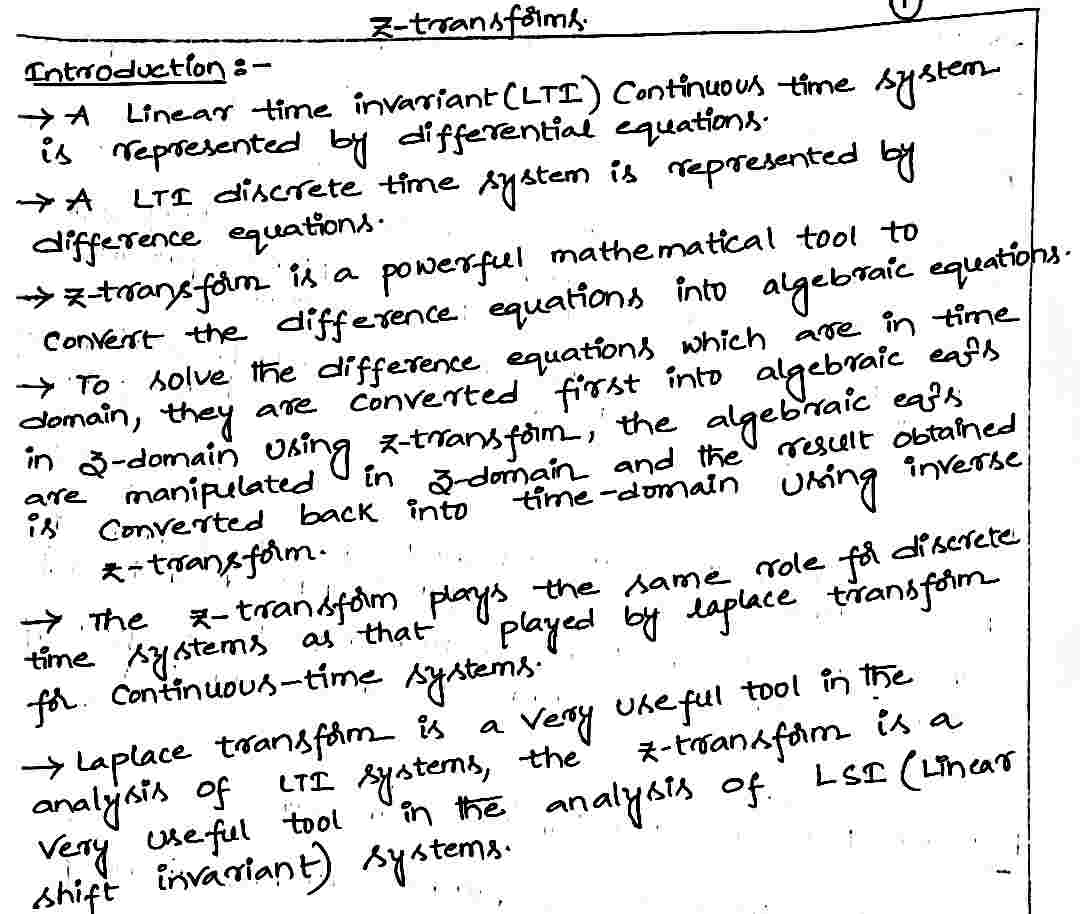 z-transforms.
1
Introduction :-
→ A Linear time invariant (LTI) Continuous time system
is represented by differential equations.
→ A LTI discrete time system is represented by
difference equations.
→ z-transform is a powerful mathematical tool to
convert the difference equations into algebraic equations.
→ To solve the difference equations which are in time
domain, they are converted first into algebraic eqns
in z-domain using z-transform, the algebraic eqns
are manipulated in z-domain and the result obtained
is converted back into time-domain using inverse
z-transform.
→ The z-transform plays the same role for discrete
time systems as that played by laplace transform
for continuous-time systems.
→ Laplace transform is a very useful tool in the
analysis of LTI systems, the z-transform is a
very useful tool in the analysis of LSI (Linear
shift invariant) systems.